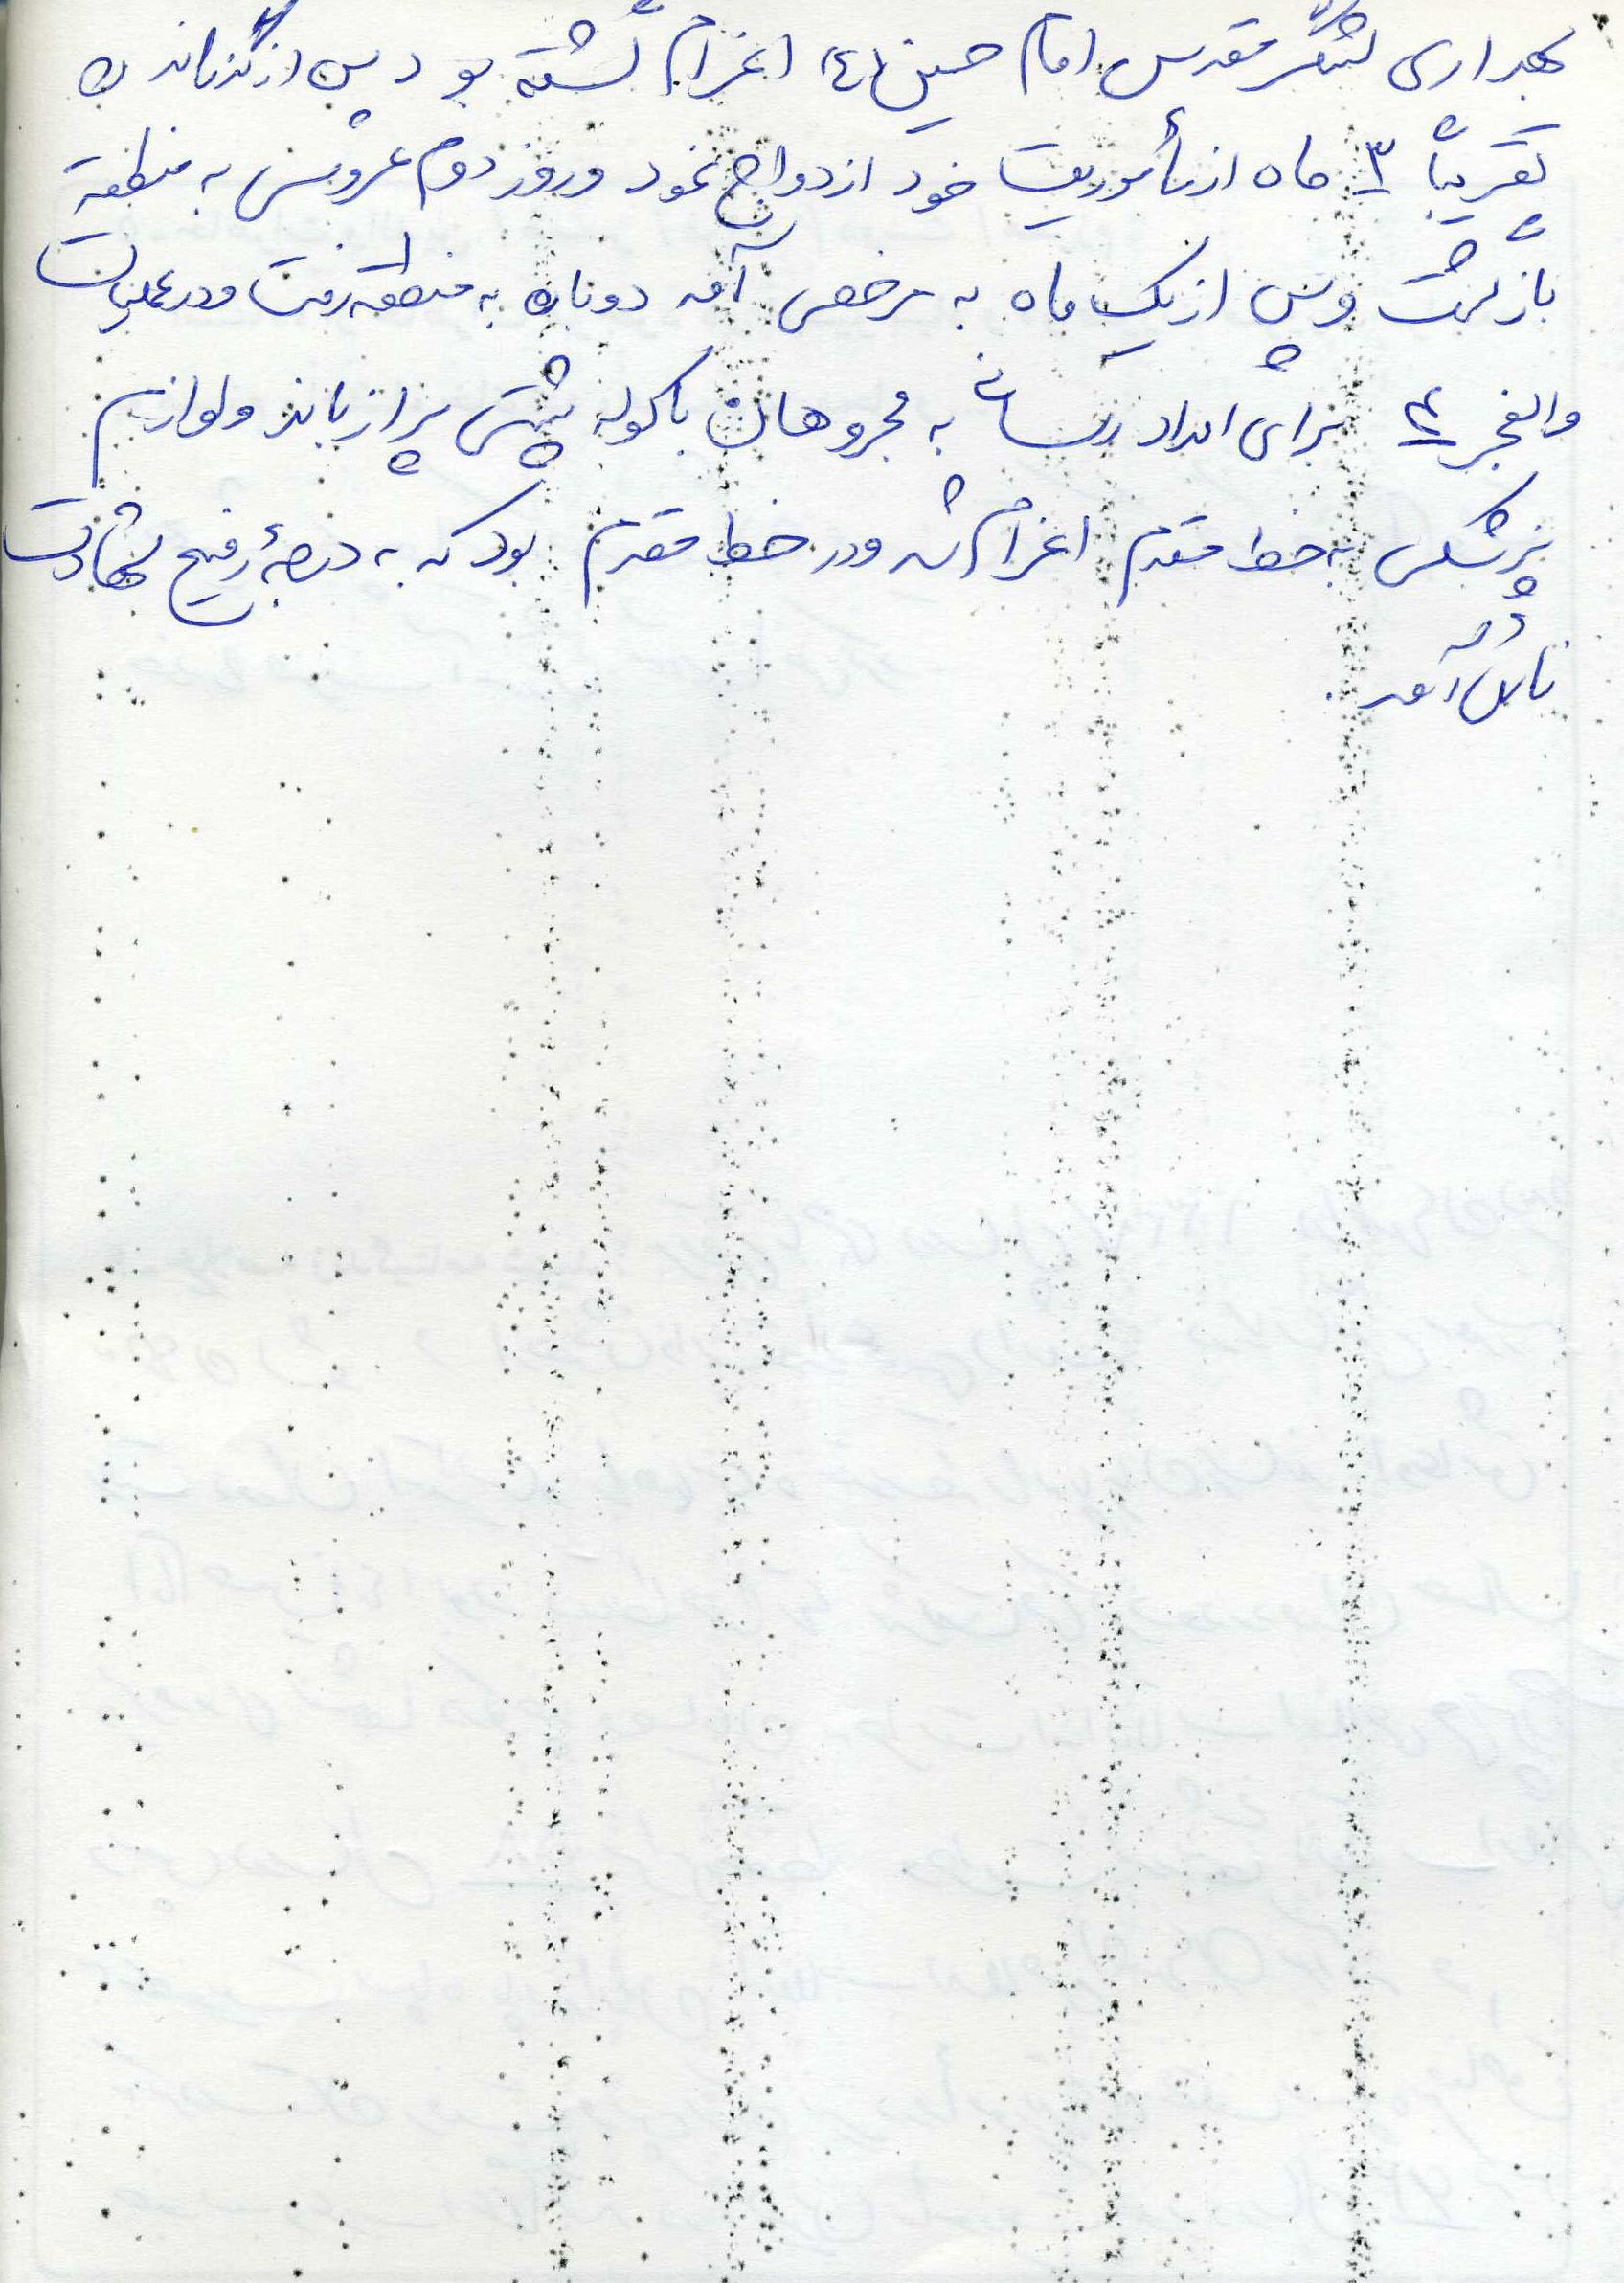 بهداری لشکر مقدس امام حسین (ع) اعزام گشته بود پس از گذراندن
تقریباً ۳ ماه از مأموریت خود ازدواج نمود و روز دوم عروسی به منطقه
بازگشت و پس از یک ماه به مرخصی آمد دوباره به منطقه رفت و در عملیات
والفجر ۴ برای امداد رسانی به مجروحان با کوله پشتی پر از باند و لوازم
پزشکی به خط مقدم اعزام شد و در خط مقدم بود که به درجهٔ رفیع شهادت
نائل آمد.